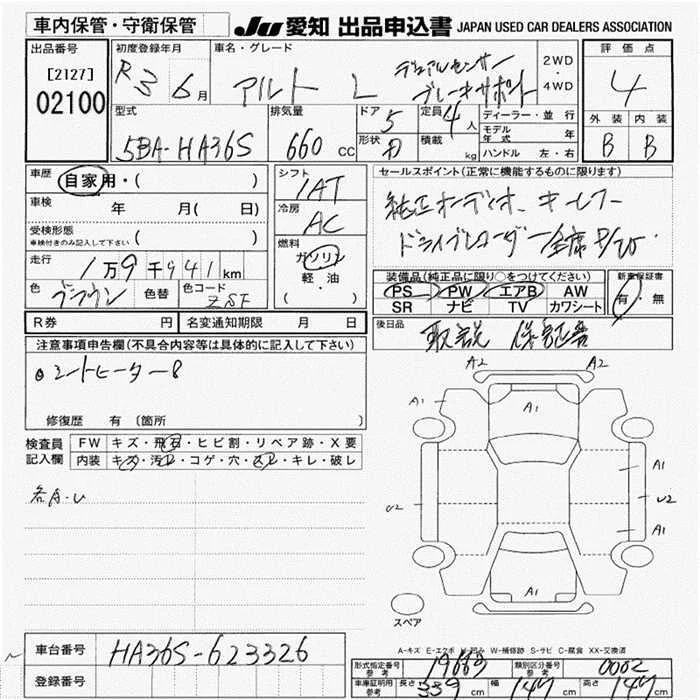 車内保管・守衛保管
JU 愛知 出品申込書 JAPAN USED CAR DEALERS ASSOCIATION
出品番号
[2127]
02100
初度登録年月
R3 6月
車名・グレード
アルト L
デュアルセンサー
ブレーキサポート
2WD
・
4WD
評価点
4
外装 内装
B B
型式
5BA-HA36S
排気量
660 cc
ドア 5
形状
定員 4人
積載 kg
ディーラー・並行
モデル年式 年
ハンドル 左・右
車歴 自家用・( )
車検 年 月( 日)
受検形態
車検付きのみ記入して下さい ( )
走行 1万9千941km
色 ブラウン 色替 色コード ZSF
シフト
IAT
冷房
AC
燃料
ガソリン
軽・油
( )
セールスポイント(正常に機能するものに限ります)
純正オーディオ、キーレス
ドライブレコーダー
装備品(純正品に限り○をつけてください)
PS PW エアB AW
SR ナビ TV カワシート
新車保証書
有・無
後日品
取説 保証書
R券 円 名変通知期限 月 日
注意事項申告欄(不具合内容等は具体的に記入して下さい)
シートヒーター
修復歴 有 〔箇所 〕
検査員
記入欄
FW キズ・飛石・ヒビ割・リペア跡・X要
内装 キズ・汚レ・コゲ・穴・スレ・キレ・破レ
各A・U
A2 A2
A1 A1
A1
U2 U2
A1
A1
スペア
A-キズ E-エクボ U-凹み W-補修跡 S-サビ C-腐食 XX-交換済
車台番号 HA36S-623326
登録番号
形式指定番号
参考
19663
類別区分番号
参考
0002
車庫証明用
参考
長さ 339 cm 幅 147 cm 高さ 147 cm